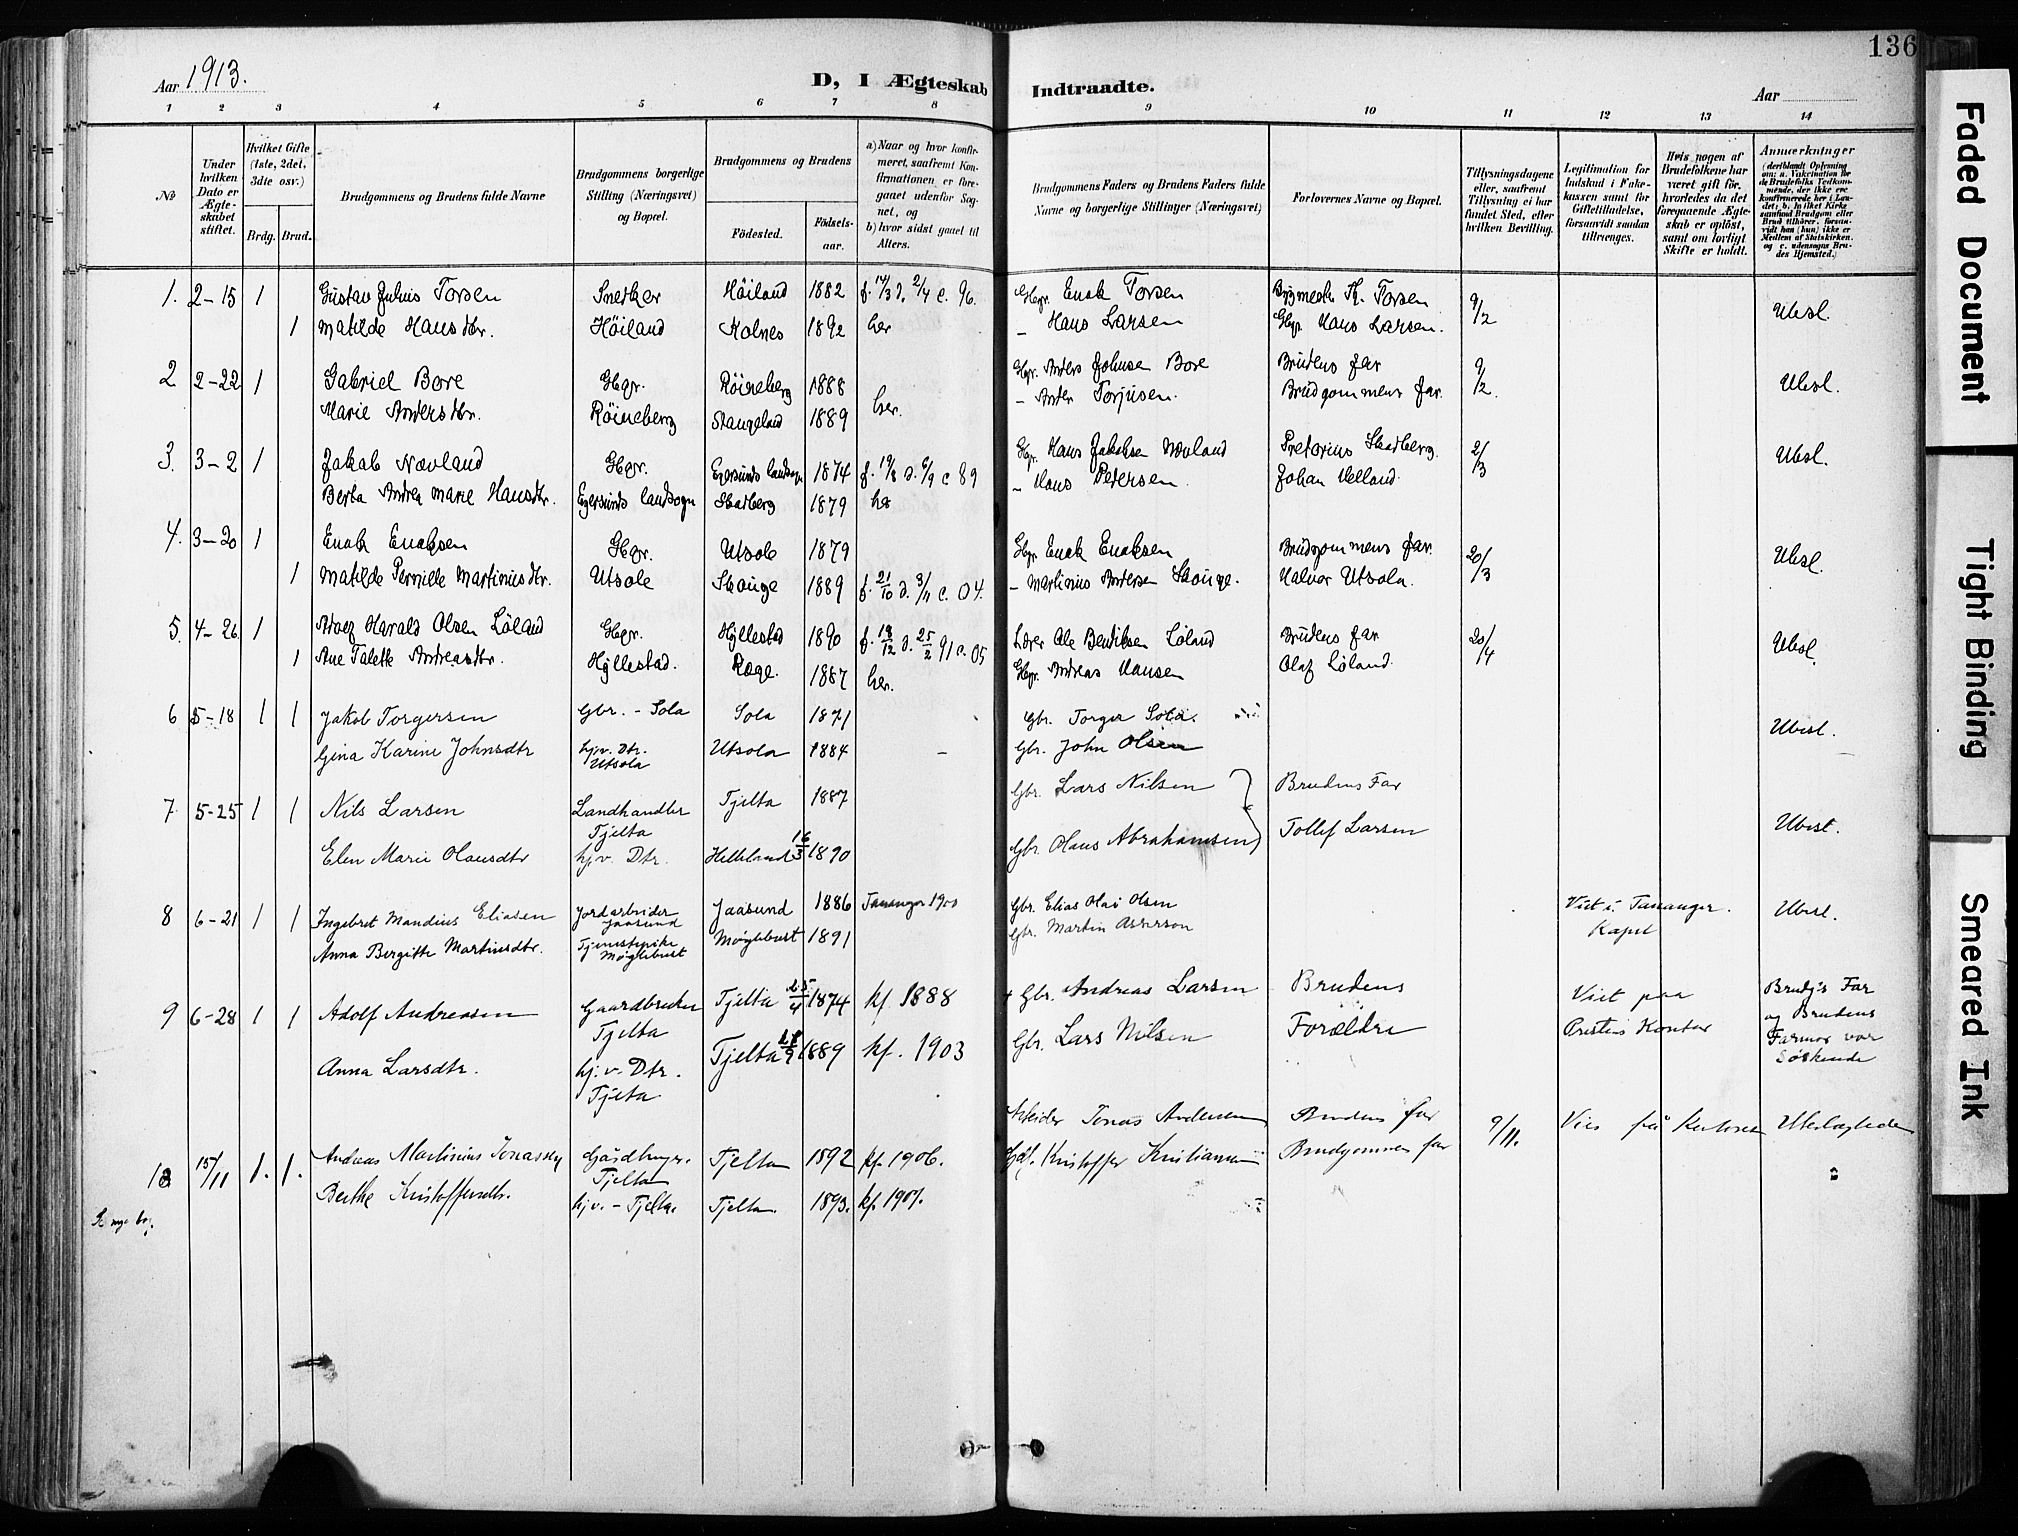 136
Aar 1913.
D, I Ægteskab Indtraadte.
Aar
1 2 3 4 5 6 7 8 9 10 11 12 13 14
No
Under hvilken Dato er Ægteskabet stiftet.
Hvilket Gifte (1ste, 2det, 3dte osv.)
Brdg. Brud.
Brudgommens og Brudens fulde Navne
Brudgommens borgerlige Stilling (Næringsvei) og Bopæl.
Brudgommens og Brudens
Födested. Födselsaar.
a) Naar og hvor konfirmeret, saafremt Konfirmationen er foregaaet udenfor Sognet, og
b) hvor sidst gaaet til Alters.
Brudgommens Faders og Brudens Faders fulde Navne og borgerlige Stillinger (Næringsvei)
Forlovernes Navne og Bopæl.
Tillysningsdagene eller, saafremt Tillysning ei har fundet Sted, efter hvilken Bevilling.
Legitimation for Indskud i Enkekassen samt for Giftetilladelse, forsaavidt saadan tiltrænges.
Hvis nogen af Brudefolkene har været gift för, hvorledes da det foregaaende Ægteskab er oplöst, samt om lovligt Skifte er holdt.
Anmærkninger
1. 2-15 1 Gustav Julius Torsen Snetker Höiland 1882 f. 14/3 d. 2/4 c. 96. Gbgr. Enok Torsen Bygmester Th. Torsen 9/2 Ubesl.
1 Matilde Hansdtr. Höiland Kolnes 1892 her - Hans Larsen Gbgr. Hans Larsen.
2 2-22 1 Gabriel Bore Gbgr. Röineberg 1888 her. Gbgr. Anders Johnsen Bore Brudens far 9/2. Ubesl.
Marie Andersdtr. Röineberg Stangeland 1889 - Anders Torjusen. Brudgommens far.
3. 3-2 1 Jakob Nævland Gbgr. Egersunds landsogn 1874 f. 19/8 d. 6/9 c 89 Gbgr. Hans Jakobsen Nævland Pretorius Skadberg. 2/3 Ubesl.
Berta Andrea Marie Hansdtr. Egersunds landsogn Skadberg 1879 her - Hans Petersen Johan Helland
4. 3-20 1 Enok Enoksen Gbgr. Utsole 1879 Gbgr. Enok Enoksen Brudgommens far. 20/3 Ubesl.
1 Matilde Pernille Martiniusdtr. Utsole Skouge 1889 f. 21/10 d. 3/11 c. 04. - Martinius Andersen Skouge. Halvor Utsola.
5. 4-26 1 Adolf Harald Olsen Löland Gbgr. Hyllestad 1890 f. 18/12 d. 25/2 91 c. 05 Lærer Ole Bendiksen Löland Brudens far 20/4 Ubesl.
1 Ane Talette Andreasdtr. Hyllestad. Ræge. 1887 her. Gbgr. Andreas Hansen Olaf Löland.
6 5-18 1 1 Jakob Torgersen Gbr. - Sola Sola 1871 Gbr. Torger Sola. Ubesl.
Gina Karine Johnsdtr hjv. Dtr. Utsola Utsola 1884 - Gbr. John Olsen
7 5-25 1 1 Nils Larsen Landhandler Tjelta Tjelta 1887 Gbr. Lars Nilsen Brudens Far Ubesl.
Elen Marie Olausdtr hj.v. Dtr. Helleland 16/3 1890 Gbr. Olaus Abrahamsen Tollef Larsen
8 6-21 1 1 Ingebret Mandius Eliasen Jordarbeider Jaasund Jaasund 1886 Tananger 1900 Gbr. Elias Olai Olsen Viet i Tananger Kapel Ubesl.
Anna Bergitte Martinsdtr. Tjenestepike Møglebust Møglebust 1891 Gbr. Martin Asserson
9 6-28 1 1 Adolf Andreasen Gaardbruker Tjelta Tjelta 25/4 1874 kf. 1888 + Gbr. Andreas Larsen Brudens Forældre Viet paa Prestens Kontor Brudg's Far og Brudens Farmor var Søskende
Anna Larsdtr. hj.v. Dtr. Tjelta Tjelta 1889 kf. 1903 Gbr. Lars Nilsen
10 15/11 1. 1. Andreas Martinius Jonassen Tjelta Tjelta 1892 kf. 1906. Arbeider Jonas Andersen Brudens far 9/11. Vies på Kontoret Ubeslægtede
Berthe Kristoffersdtr. hjv. - Tjelta. Tjelta 1893. kf. 1907. Kristoffer Kristiansen Brudgommens far
Faded Document
Tight Binding
Smeared Ink